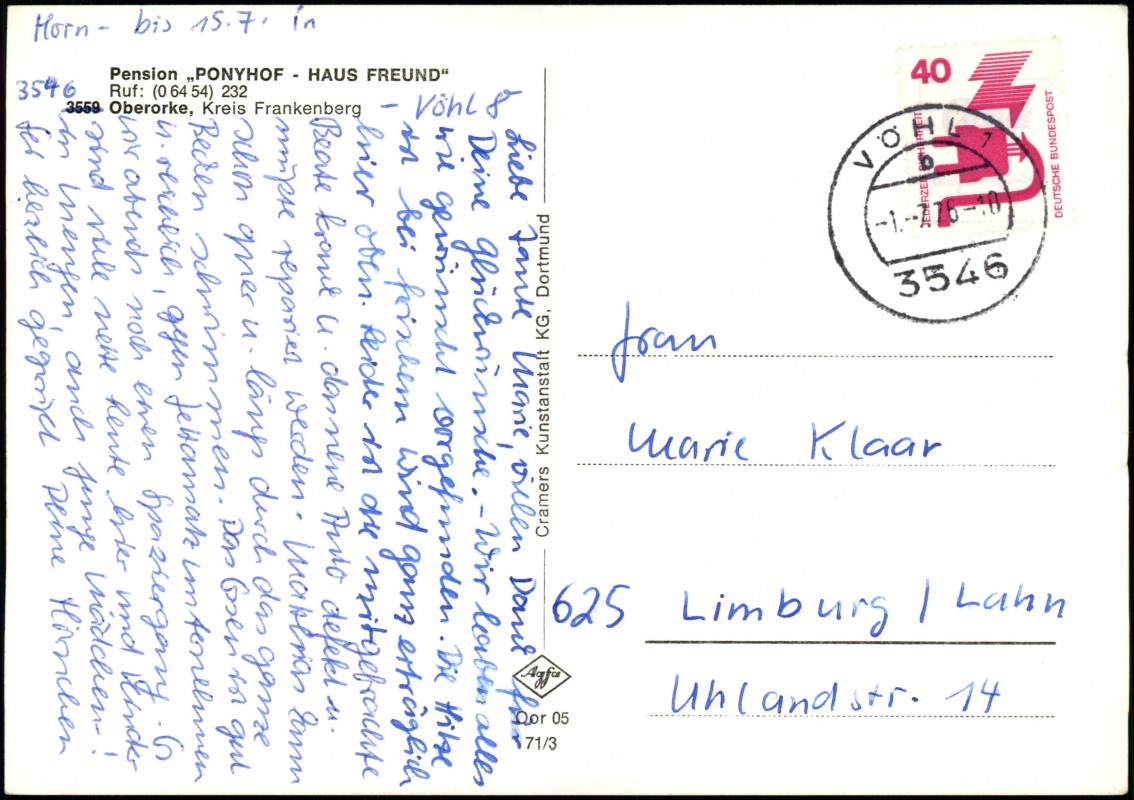 Horn - bis 15.7. in
Pension „PONYHOF - HAUS FREUND“
Ruf: (0 64 54) 232
3546
3559 Oberorke, Kreis Frankenberg - Vöhl 8
Liebe Tante Marie, vielen Dank für
Deine Glückwünsche. - Wir haben alles
wie gewünscht vorgefunden. Die Hitze
ist bei frischem Wind ganz erträglich
hier oben. Leider ist die mitgebrachte
Beate krank u. dessen Auto defekt u.
mußte repariert werden. Mathias kann
schon quer u. längs durch das ganze
Becken schwimmen. Das Essen ist gut
u. reichlich, gegen Fettansatz unternehmen
wir abends noch einen Spaziergang. Es
sind viele nette Leute hier und Kinder
in Mengen, auch junge Mädchen!
Sei herzlich gegrüßt Deine Hörnchen
Cramers Kunstanstalt KG, Dortmund
Agfa
Cor 05
71/3
40
JEDERZEIT SICHERHEIT
DEUTSCHE BUNDESPOST
VÖHL 1
b
-1.-7.76-10
3546
Frau
Marie Klaar
625 Limburg / Lahn
Uhlandstr. 14